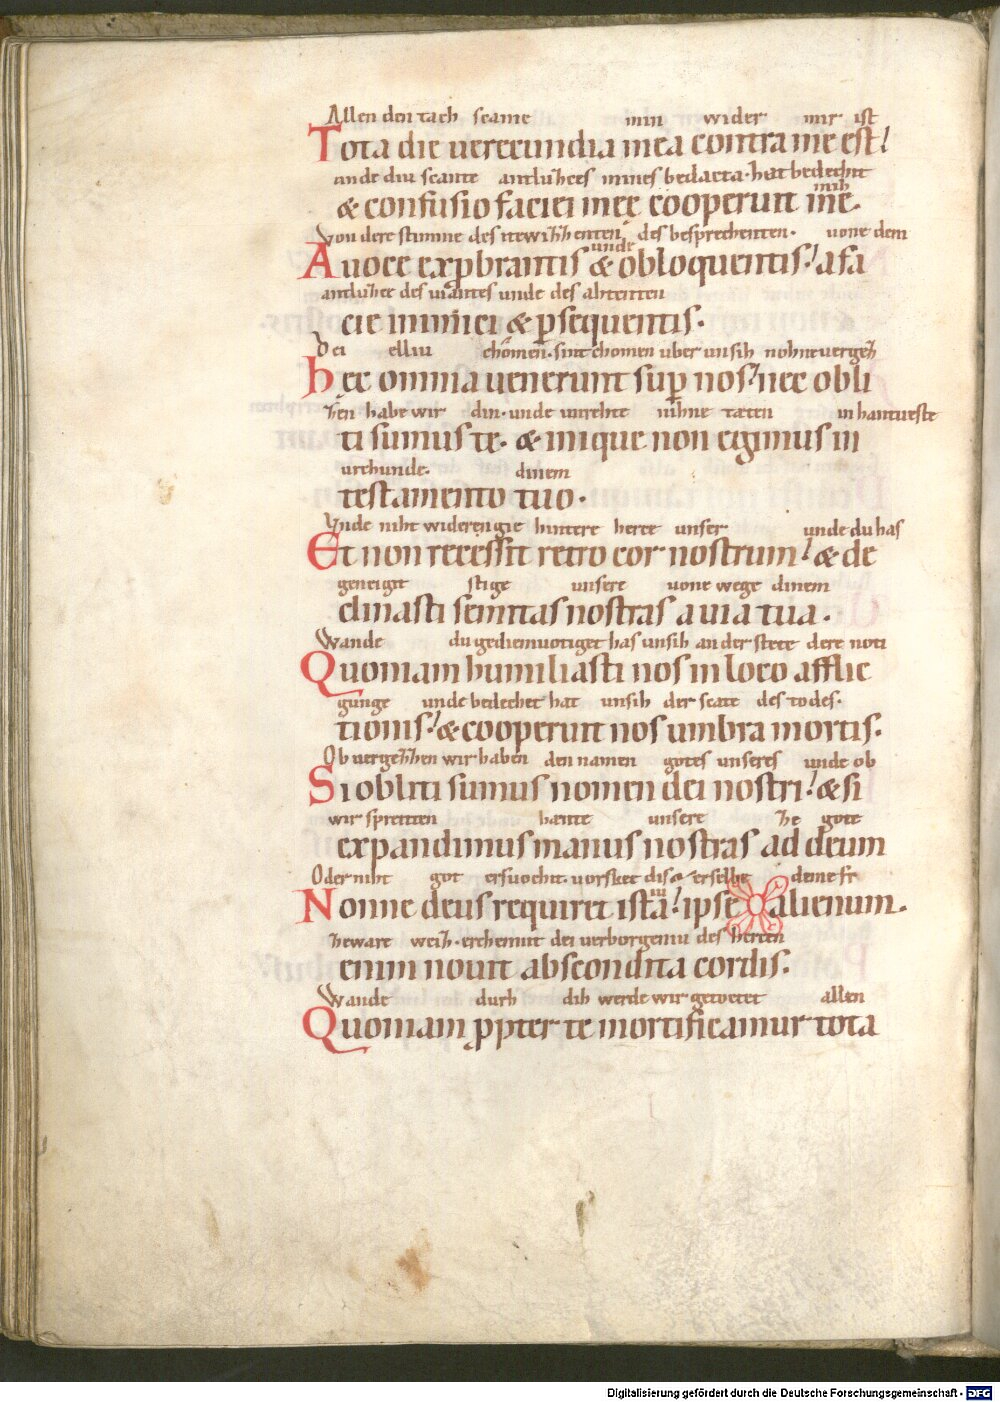 Allen den tach scame min wider mir ist
Tota die uerecundia mea contra me est
unde diu scante antluhces mines bedacta · hat bedechit
mih
& confusio faciei meę cooperuit me.
Von dere stimme des itewihhenten des besprechenten · uone dem
unde
A uoce exprobrantis & obloquentis · a fa
antluhce des uiantes unde des ahtenten
cie inimici & psequentis.
Dei elliu chomen · sint chomen uber unsih noh ne uergeh
hęc omnia uenerunt sup nos · nec obli
hen habe wir din · unde unrehte nihne taten in hantueste
ti sumus te · & inique non egimus in
urchunde · dinem
testamento tuo ·
Vnde niht widerengie hintere herce unser unde du has
Et non recessit retro cor nostrum & de
geneigit stige unsere uone wege dinem
clinasti semitas nostras a uia tua ·
Wande du gediemuotiget has unsih an der stete dere noti
Quoniam humiliasti nos in loco afflic
gunge unde bedechet hat unsih der scate des todes ·
tionis · & cooperuit nos umbra mortis ·
Ob uergehhen wir haben den namen gotes unseres unde ob
Si obliti sumus nomen dei nostri & si
wir spreiten hante unsere ze gote
expandimus manus nostras ad deum
Oder niht got ersuochit · uorsket disiu er selbe deme fr
Nonne deus requiret ista · ipse alienum ·
zeware weih · erchennit dei uerborgeniu des hercen
enim nouit abscondita cordis ·
Wande durh dih werde wir getoetet allen
Quoniam ppter te mortificamur tota
Digitalisierung gefördert durch die Deutsche Forschungsgemeinschaft - DFG